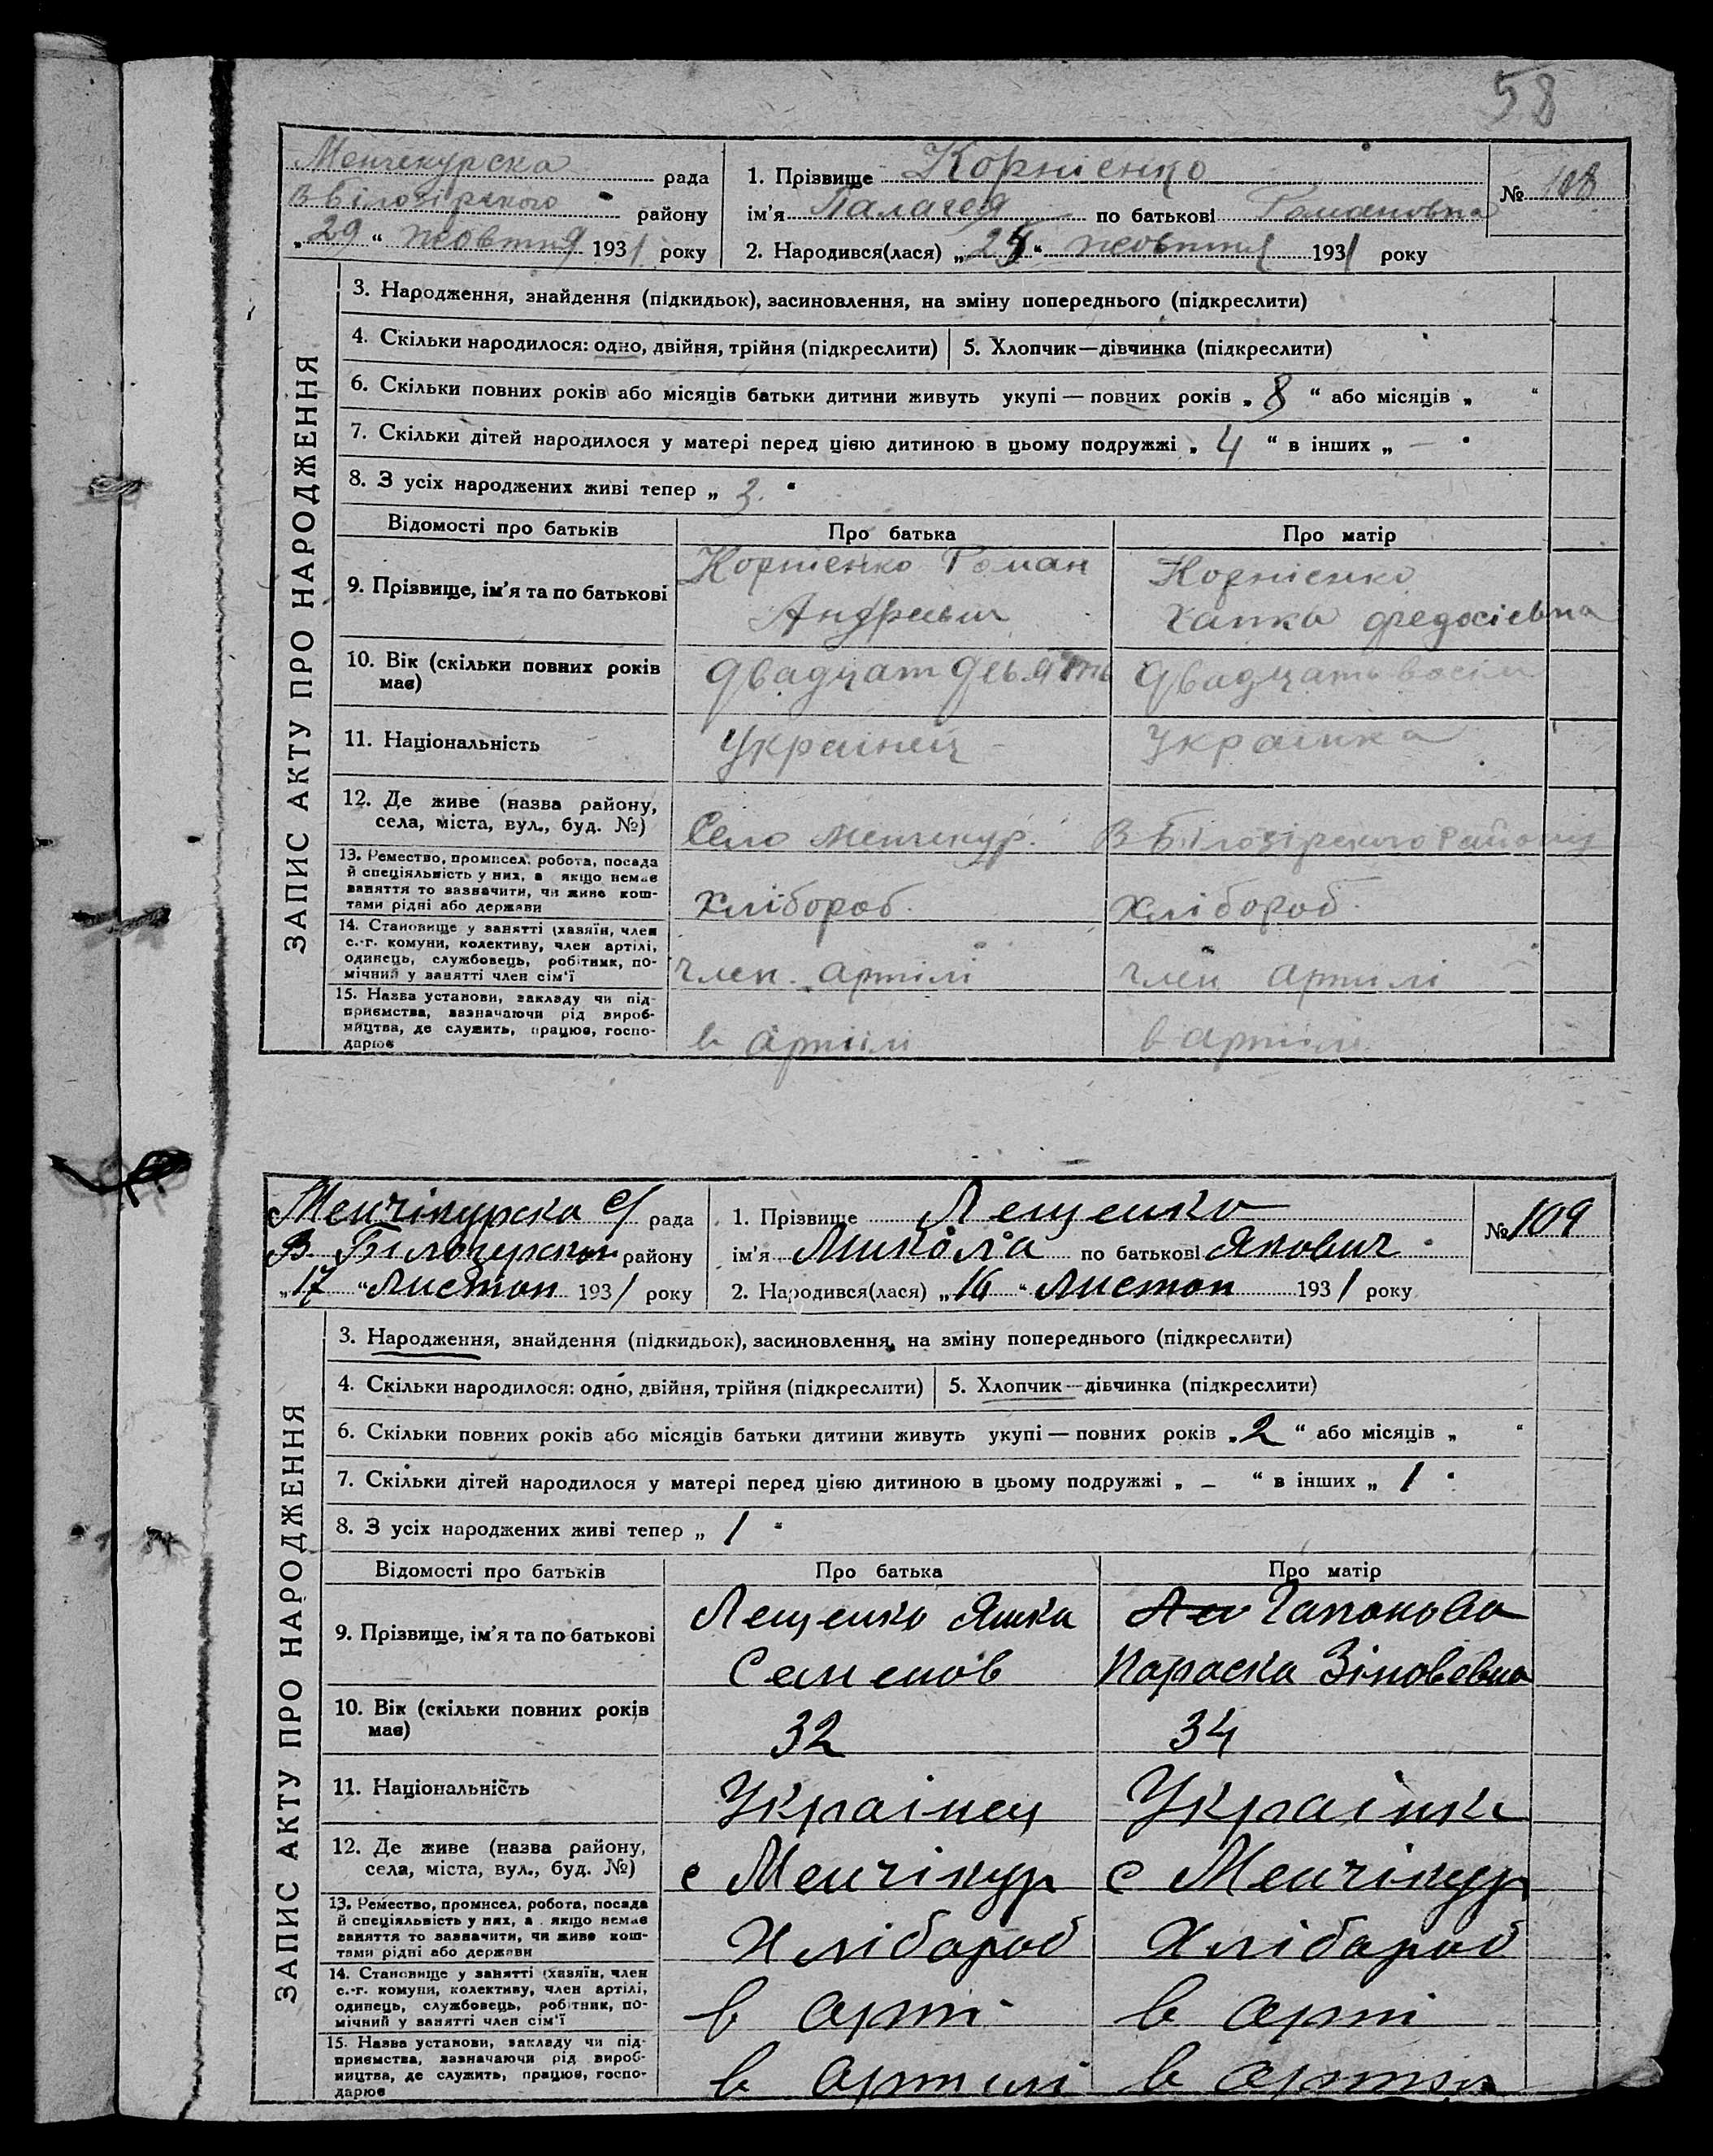 58
Менчекурска рада
В Білозірского району
„29“ жовтня 1931 року
1. Прізвище Корнієнко
ім'я Палагея по батькові Романовна
2. Народився(лася) „ “ жовтня 1931 року
№ 108
ЗАПИС АКТУ ПРО НАРОДЖЕННЯ
3. Народження, знайдення (підкидьок), засиновлення, на зміну попереднього (підкреслити)
4. Скільки народилося: одно, двійня, трійня (підкреслити) 5. Хлопчик—дівчинка (підкреслити)
6. Скільки повних років або місяців батьки дитини живуть укупі — повних років „8“ або місяців „ “
7. Скільки дітей народилося у матері перед цією дитиною в цьому подружжі „4“ в інших „—“
8. З усіх народжених живі тепер „3.“
Відомості про батьків Про батька Про матір
9. Прізвище, ім'я та по батькові Корнієнко Роман Корнієнко
Андреевич Ганка Федосієвна
10. Вік (скільки повних років має) двадцат девять двадцать восім
11. Національність Украінец Украінка
12. Де живе (назва району, села, міста, вул., буд. №) Село Менчекур. В Білозірского Району
13. Ремество, промисел, робота, посада й спеціяльність у них, а якщо немає заняття то зазначити, чи живе коштами рідні або держави Хлібороб. Хлібороб.
14. Становище у занятті (хазяїн, член с.-г. комуни, колективу, член артілі, одинець, службовець, робітник, помічний у занятті член сім'ї член артілі член артилі
15. Назва установи, закладу чи підприємства, зазначаючи рід виробництва, де служить, працює, господарює в артіли в артіли
Менчікурска с/ рада
В. Білозерского району
„17“ Листоп 1931 року
1. Прізвище Лещенко
ім'я Микола по батькові Якович
2. Народився(лася) „16“ Листоп 1931 року
№ 109
ЗАПИС АКТУ ПРО НАРОДЖЕННЯ
3. Народження, знайдення (підкидьок), засиновлення, на зміну попереднього (підкреслити)
4. Скільки народилося: одно, двійня, трійня (підкреслити) 5. Хлопчик—дівчинка (підкреслити)
6. Скільки повних років або місяців батьки дитини живуть укупі — повних років „2“ або місяців „ “
7. Скільки дітей народилося у матері перед цією дитиною в цьому подружжі „–“ в інших „1“
8. З усіх народжених живі тепер „1“
Відомості про батьків Про батька Про матір
9. Прізвище, ім'я та по батькові Лещенко Яшка Гапонова
Семенов Параска Зіновевна
10. Вік (скільки повних років має) 32 34
11. Національність Украінец Украінка
12. Де живе (назва району, села, міста, вул., буд. №) с Менчікур с Менчікур
13. Ремество, промисел, робота, посада й спеціяльність у них, а якщо немає заняття то зазначити, чи живе коштами рідні або держави Хлібароб Хлібароб
14. Становище у занятті (хазяїн, член с.-г. комуни, колективу, член артілі, одинець, службовець, робітник, помічний у занятті член сім'ї в арті в арті
15. Назва установи, закладу чи підприємства, зазначаючи рід виробництва, де служить, працює, господарює в артилі в артіл